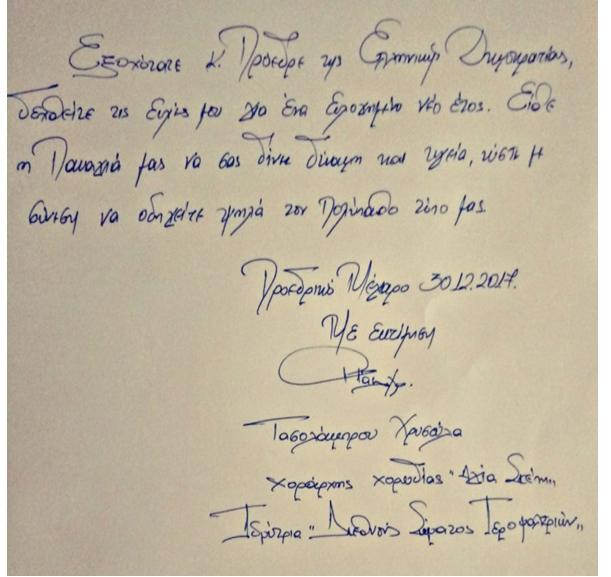 Εξοχώτατε κ. Πρόεδρε της Ελληνικής Δημοκρατίας,
δεχθείτε τις ευχές μου για ένα ευλογημένο νέο έτος. Είθε
η Παναγιά μας να σας δίνει δύναμη και υγεία, ώστε με
σύνεση να οδηγείτε ψηλά τον πολύπαθο τόπο μας.
Προεδρικό Μέγαρο 30.12.2017.
Με εκτίμηση
Τασολάμπρου Χρυσούλα
χοράρχης χορωδίας "Αγία Σκέπη"
Ιδρύτρια "Διεθνούς Σώματος Ιεροψαλτριών"